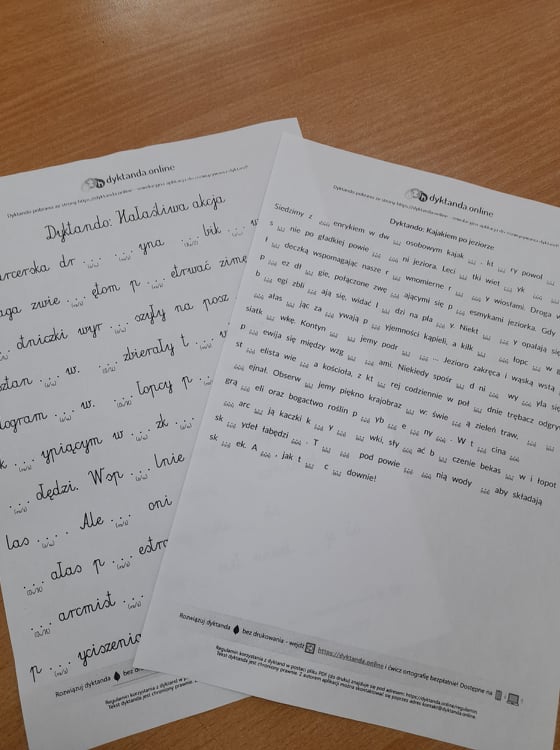 dyktanda.online
Dyktando pobrano ze strony https://dyktanda.online
Dyktando: Hałaśliwa akcja
arcerska dr yna bik
aga zwie ętom p etrwać zimę
dniczki wyr oszyły na posz
ztan w. zbierały t
logram w. łopcy p
k ypiącym w zk
ołędzi. Wsp lnie
las Ale oni
ałas p estra
arcmist
p yciszenia
Rozwiązuj dyktanda
Regulamin korzystania z dyktand w p
Tekst dyktanda jest chroniony prawnie.
dyktanda.online
Dyktando pobrano ze strony https://dyktanda.online
Dyktando: Kajakiem po jeziorze
Siedzimy z enrykiem w dw osobowym kajak , kt ry powol
s nie po gładkiej powie ni jeziora. Leci tki wiet yk
ł deczką wspomagając nasze r wnomierne r y wiosłami. Droga w
p ez dł gie, połączone zwę ającymi się p esmykami jeziorka. Gdy
b egi zbli ają się, widać l dzi na pla y. Niekt y opalają się
ałas jąc za ywają p yjemności kąpieli, a kilk łopc w g
siatk wkę. Kontyn jemy podr Jezioro zakręca i wąska wstą
p ewija się między wzg ami. Niekiedy spośr d ni wy yla się
st elista wie a kościoła, z kt rej codziennie w poł dnie trębacz odgry
ejnał. Obserw jemy piękno krajobraz w: świe ą zieleń traw,
grą eli oraz bogactwo roślin p yb e ny . W t cina
arc ją kaczki k y wki, sły ać b czenie bekas w i łopot
sk ydeł łabędzi . T pod powie nią wody aby składają
sk ek. A , jak t c downie!
Rozwiązuj dyktanda bez drukowania - wejdź https://dyktanda.online i ćwicz ortografię bezpłatnie! Dostępne na
Regulamin korzystania z dyktand w postaci pliku PDF (do druku) znajduje się pod adresem: https://dyktanda.online/regulamin
Tekst dyktanda jest chroniony prawnie. Z autorem aplikacji można skontaktować się poprzez adres kontakt@dyktanda.online